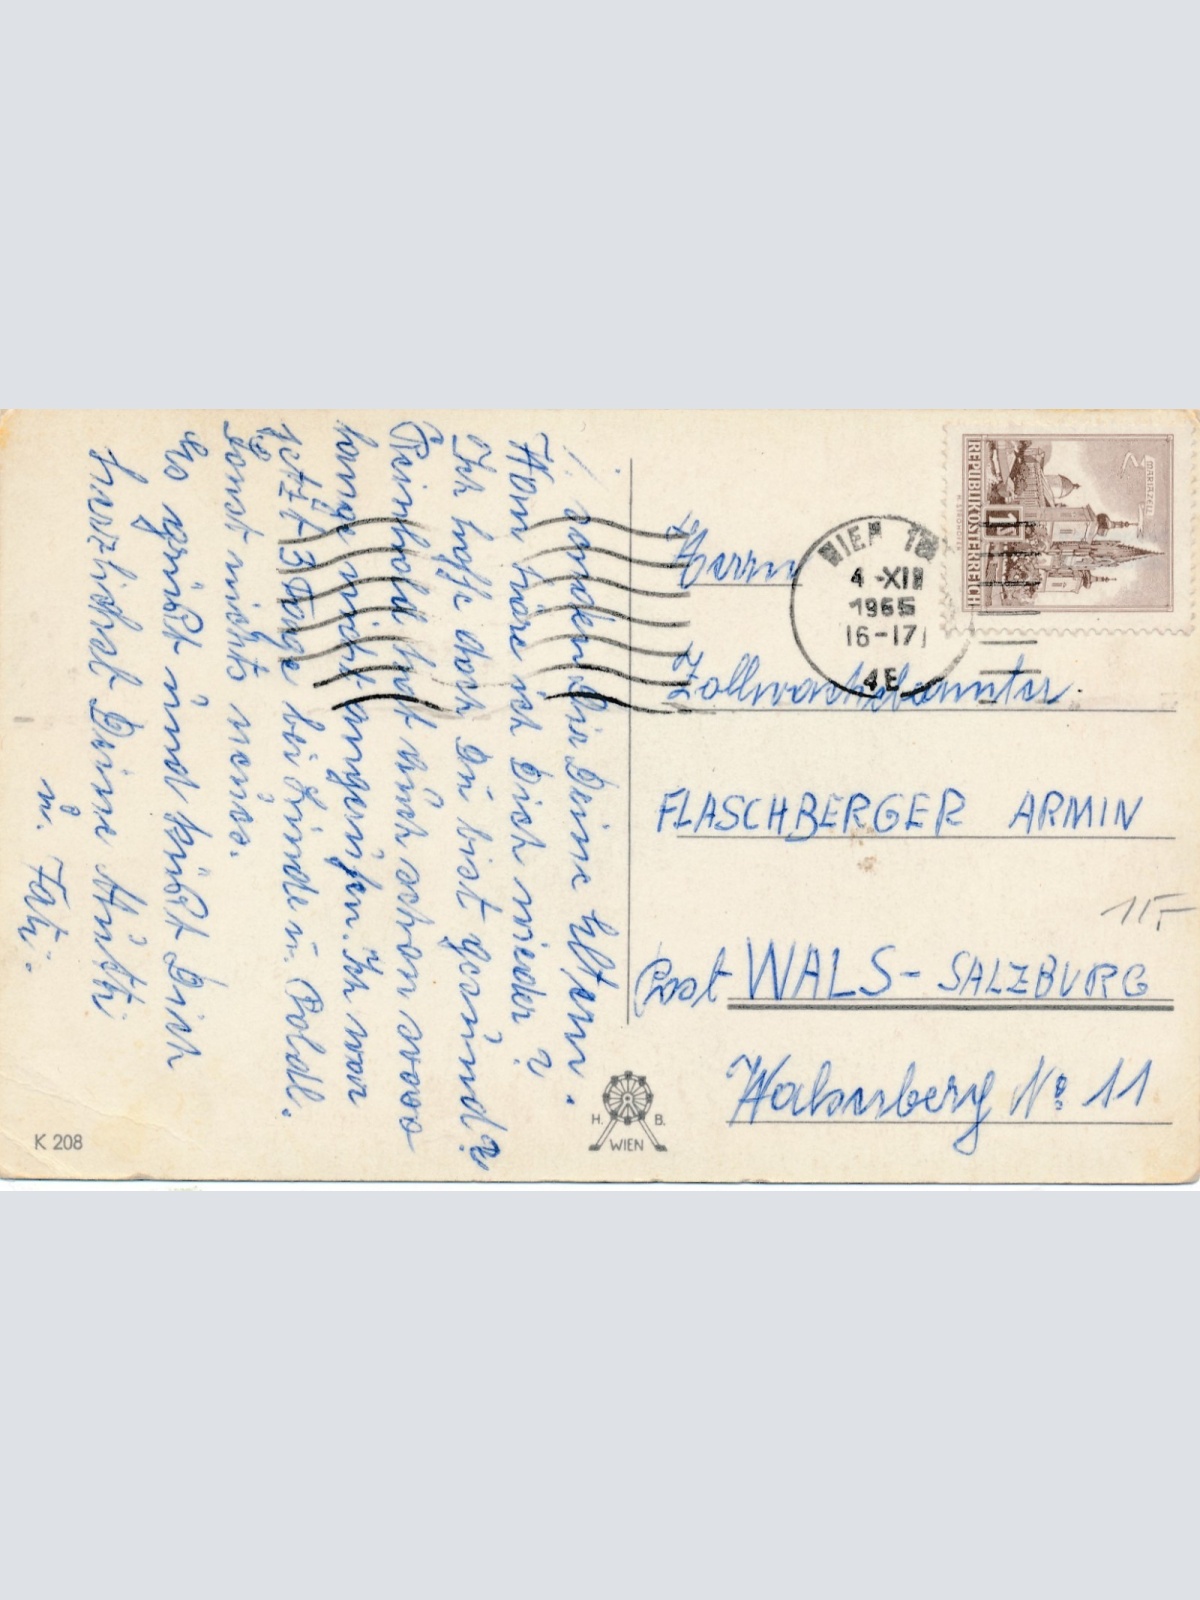 senden Dir Deine Eltern.
Wann höre ich Dich wieder?
Ich hoffe doch Du bist gesund?
Reinhold hat auch schon sooo
lange nicht angerufen. Ich war
jetzt 3 Tage bei Linde u. Poldl.
Sonst nichts neues.
Es grüßt und küßt Dich
herzlichst Deine Mutti
u. Fati.
Herrn
Zollwachebeamter
FLASCHBERGER ARMIN
Post WALS - SALZBURG
Walserberg No 11
11,-
WIEN
4 -XII
1965
16-17
4E
REPUBLIK ÖSTERREICH
MARIAZELL
1S
H. B.
WIEN
K 208